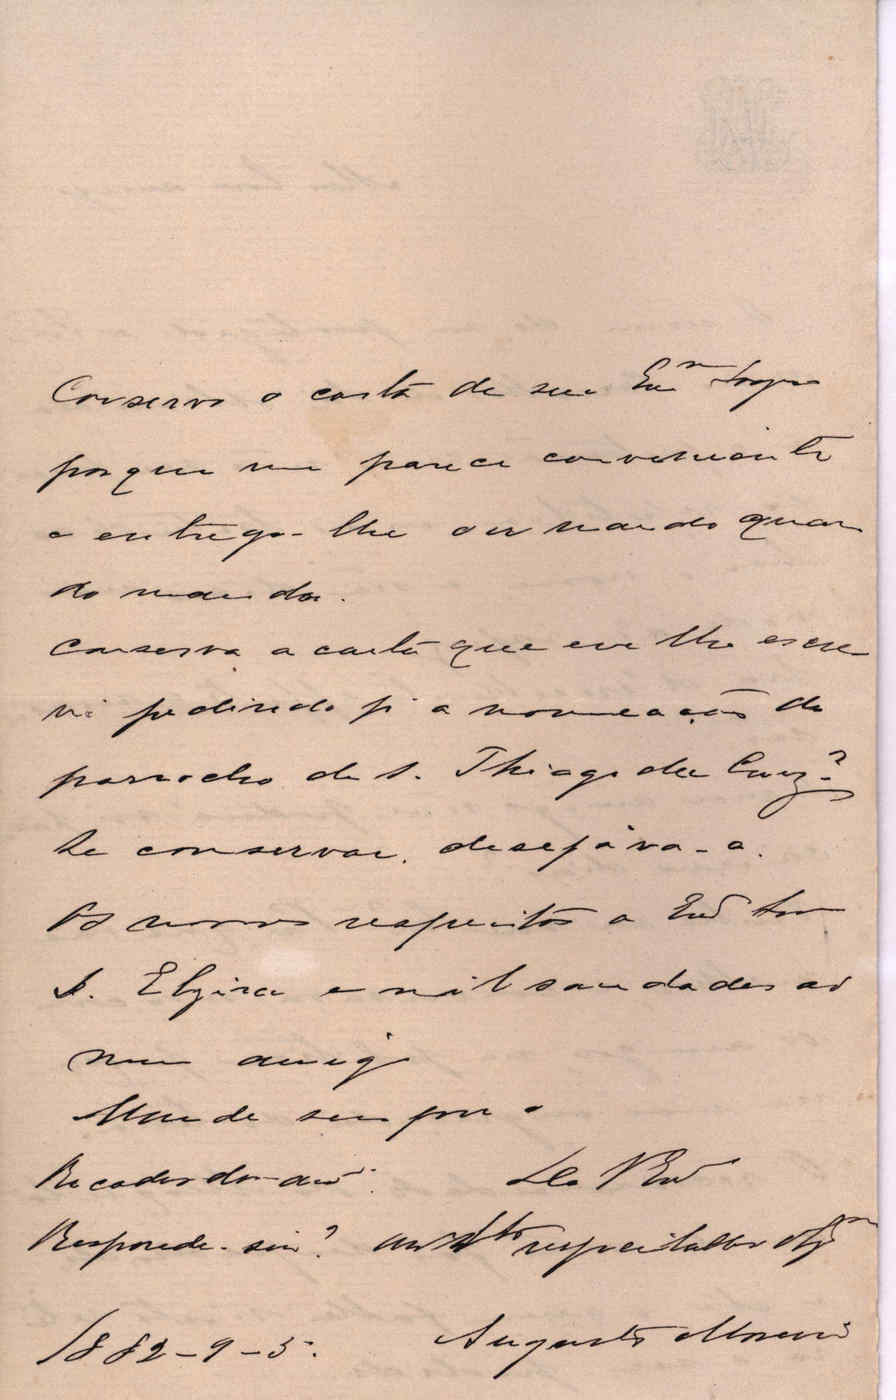 Conservo a carta de seu Exmº Sogro
porque me parece conveniente
e entrego-lhe ou mando quan
do mandar.
Conserva a carta que eu lhe escre
vi pedindo pª a nomeação do
parocho de S. Thiago da Cruz?
Se conservar, desejáva-a.
Os nossos respeitos a Exmª Sra
D. Elzira e mil saudades ao
meu amigo
Mande sempre o
De V Exª
Responde-sim? respeitador
1882-9-5.
Augusto Moreno